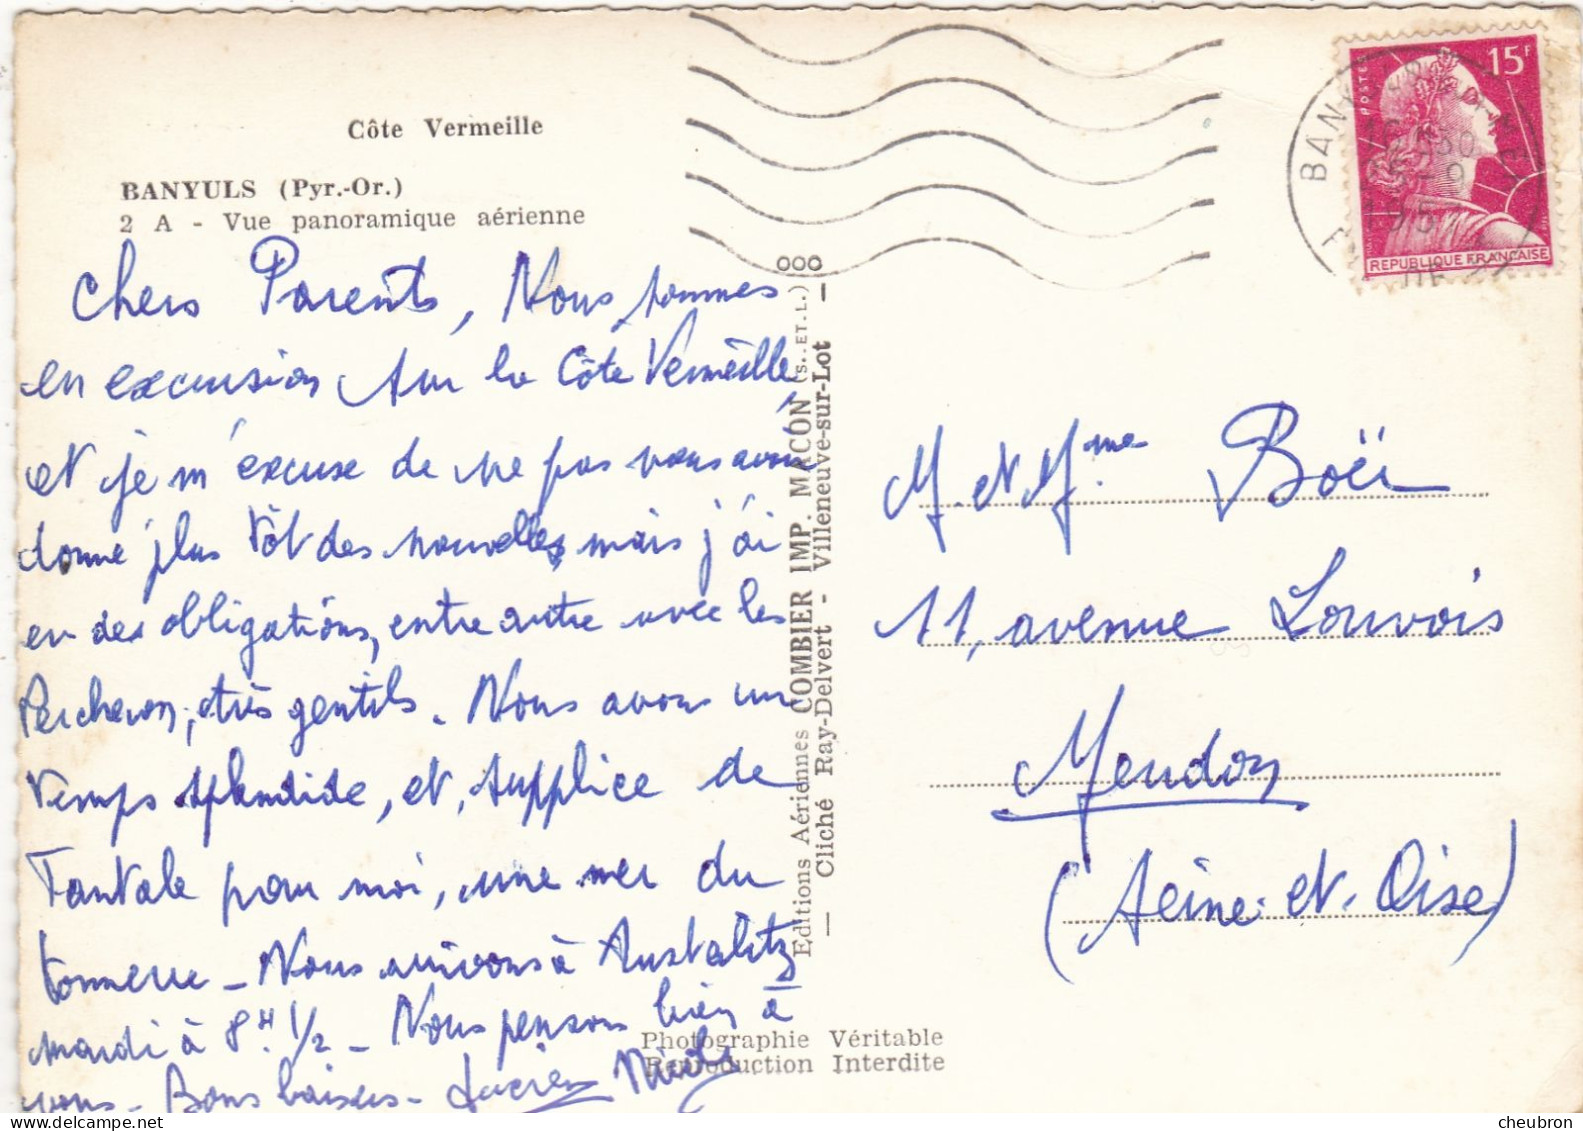 Côte Vermeille
BANYULS (Pyr.-Or.)
2 A - Vue panoramique aérienne
Chers Parents, Nous sommes
en excursion sur la Côte Vermeille,
et je m'excuse de ne pas vous avoir
donné plus tôt des nouvelles, mais j'ai
eu des obligations, entre autre avec les
Percheron, très gentils. Nous avons un
temps splendide, et, supplice de
Tantale pour moi, une mer du
tonnerre - Nous arrivons à Austalitz
mardi à 8H 1/2 - Nous pensons bien à
vous - Bons baisers - Lucien Nicole
Editions Aériennes COMBIER IMP. MACON (S..ET.L.) ooo
— Cliché Ray-Delvert - Villeneuve-sur-Lot —
Photographie Véritable
Reproduction Interdite
POSTES
15F
REPUBLIQUE FRANÇAISE
BANYULS
M. et Mme Boër
11, avenue Louvois
Meudon
(Seine-et-Oise)
cheubron